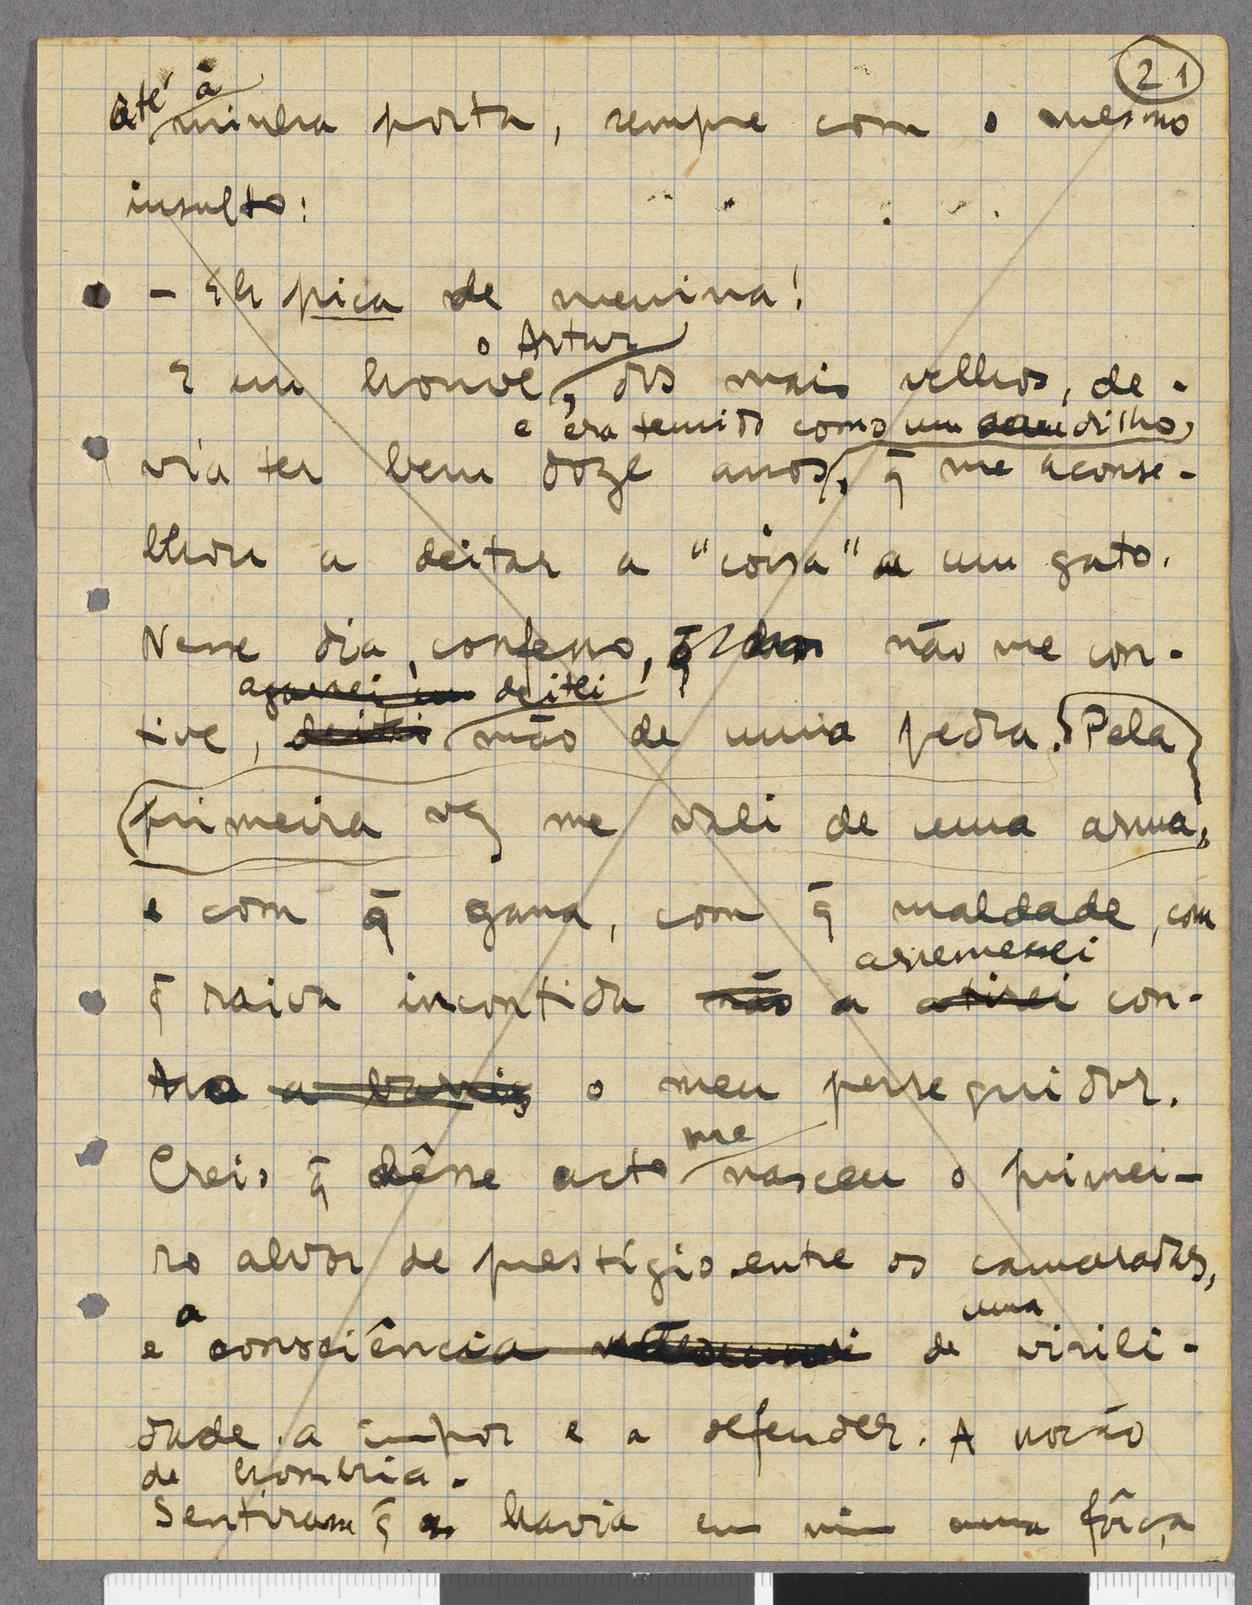 21
até à
minha porta, sempre com o mesmo
insulto:
— Eh pica de menina!
o Artur
E um houve, dos mais velhos, de-
e era temido como um caudilho,
via ter bem doze anos, q̄ me aconse-
lhou a deitar a "coisa" a um gato.
Nesse dia, confesso, q̄ não me con-
agarrei um deitei
tive, deitei mão de uma pedra. Pela
primeira vez me vali de uma arma,
e com q̄ gana, com q̄ maldade, com
arremessei
q̄ raiva incontida não a atirei con-
tra a barriga o meu perseguidor.
me
Creio q̄ dêsse acto nasceu o primei-
ro alvor de prestígio entre os camaradas,
a uma
e consciência de virili-
dade a impor e a defender. A noção
de hombria.
Sentiram q̄ havia em mim uma fôrça